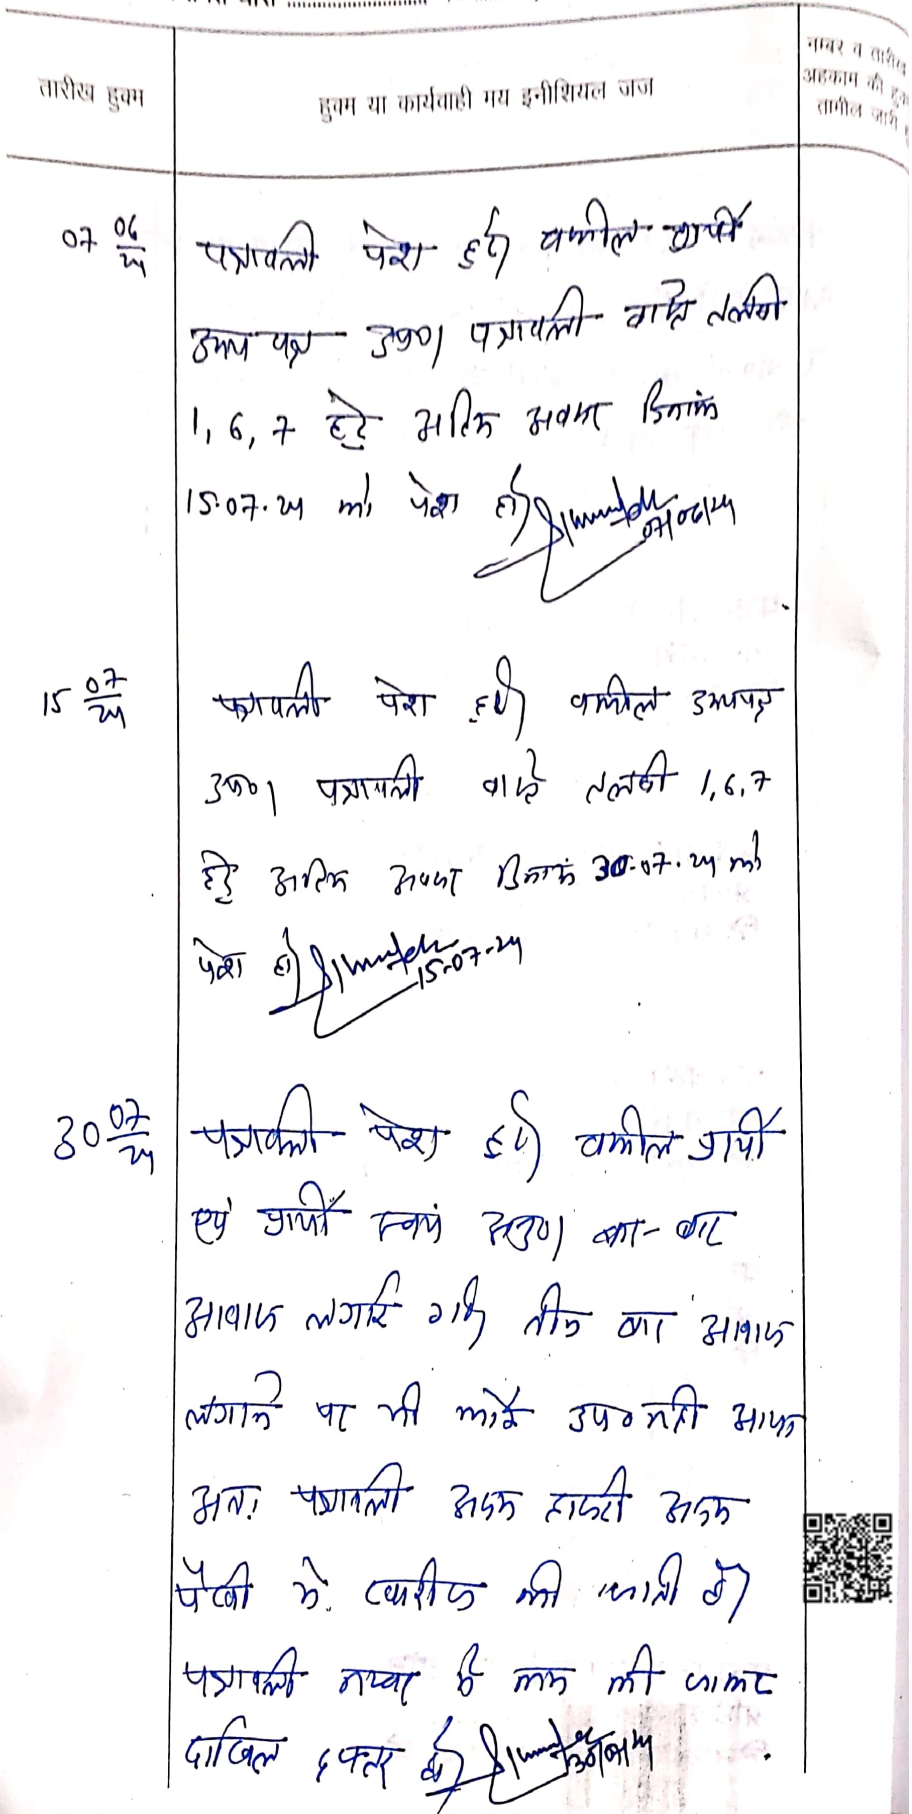 तारीख हुक्म
हुक्म या कार्यवाही मय इनीशियल जज
नम्बर व तारीख
अहकाम की
तामील जारी
07 06/24
पत्रावली पेश हुई। वकील प्रार्थी
उभय पक्ष उप०। पत्रावली वास्ते तलबी
1, 6, 7 हेतु अंतिम अवसर दिनांक
15.07.24 को पेश हो।
07/06/24
15 07/24
पत्रावली पेश हुई। वकील उभयपक्ष
उप०। पत्रावली वास्ते तलबी 1,6,7
हेतु अंतिम अवसर दिनांक 30.07.24 को
पेश हो।
15-07-24
30 07/24
पत्रावली पेश हुई। वकील प्रार्थी
एवं प्रार्थी स्वयं अनु०। बार-बार
आवाज लगाई गई। तीन बार आवाज
लगाने पर भी कोई उप० नहीं आया
अतः पत्रावली अदम हाजरी अदम
पैरवी में खारीज की जाती है।
पत्रावली नम्बर से कम की जाकर
दाखिल दफ्तर हो।